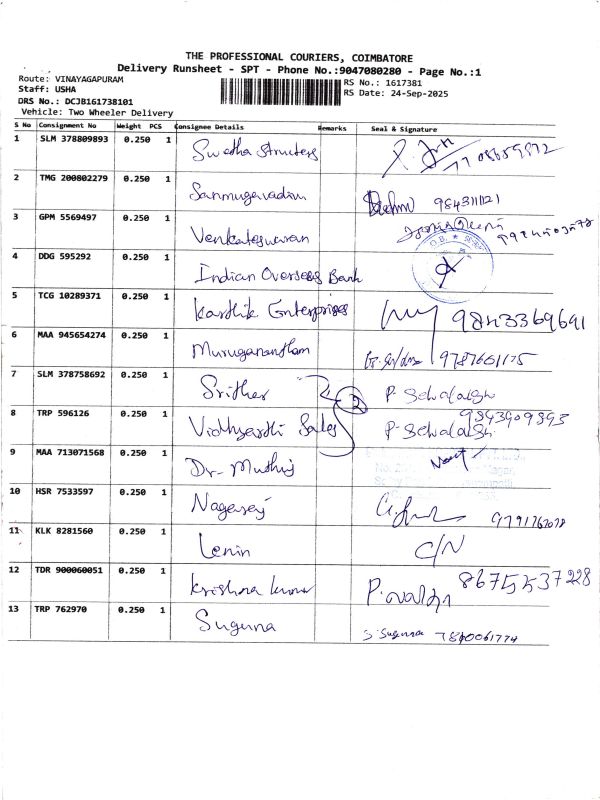 THE PROFESSIONAL COURIERS, COIMBATORE
Delivery Runsheet - SPT - Phone No.:9047080280 - Page No.:1
Route: VINAYAGAPURAM
Staff: USHA
DRS No.: DCJB161738101
Vehicle: Two Wheeler Delivery
RS No.: 1617381
RS Date: 24-Sep-2025
S No Consignment No Weight PCS Consignee Details Remarks Seal & Signature
1 SLM 378809893 0.250 1 Swetha Structers
2 TMG 200802279 0.250 1 Sanmugavadivu 984311121
3 GPM 5569497 0.250 1 Venkateswaran
4 DDG 595292 0.250 1 Indian Overseas Bank
5 TCG 10289371 0.250 1 Karthik Enterprises 9843369691
6 MAA 945654274 0.250 1 Muruganantham 9787661175
7 SLM 378758692 0.250 1 Sridher 2 P. Selvalakshi
8 TRP 596126 0.250 1 Vidhyarthi Sales 9843909893
9 MAA 713071568 0.250 1 Dr. Muthuj
10 HSR 7533597 0.250 1 Nagaraj
11 KLK 8281560 0.250 1 Lenin C/N
12 TDR 900060051 0.250 1 Krishna kumar 8675537228
13 TRP 762970 0.250 1 Suguna S. Suguna 7840061774